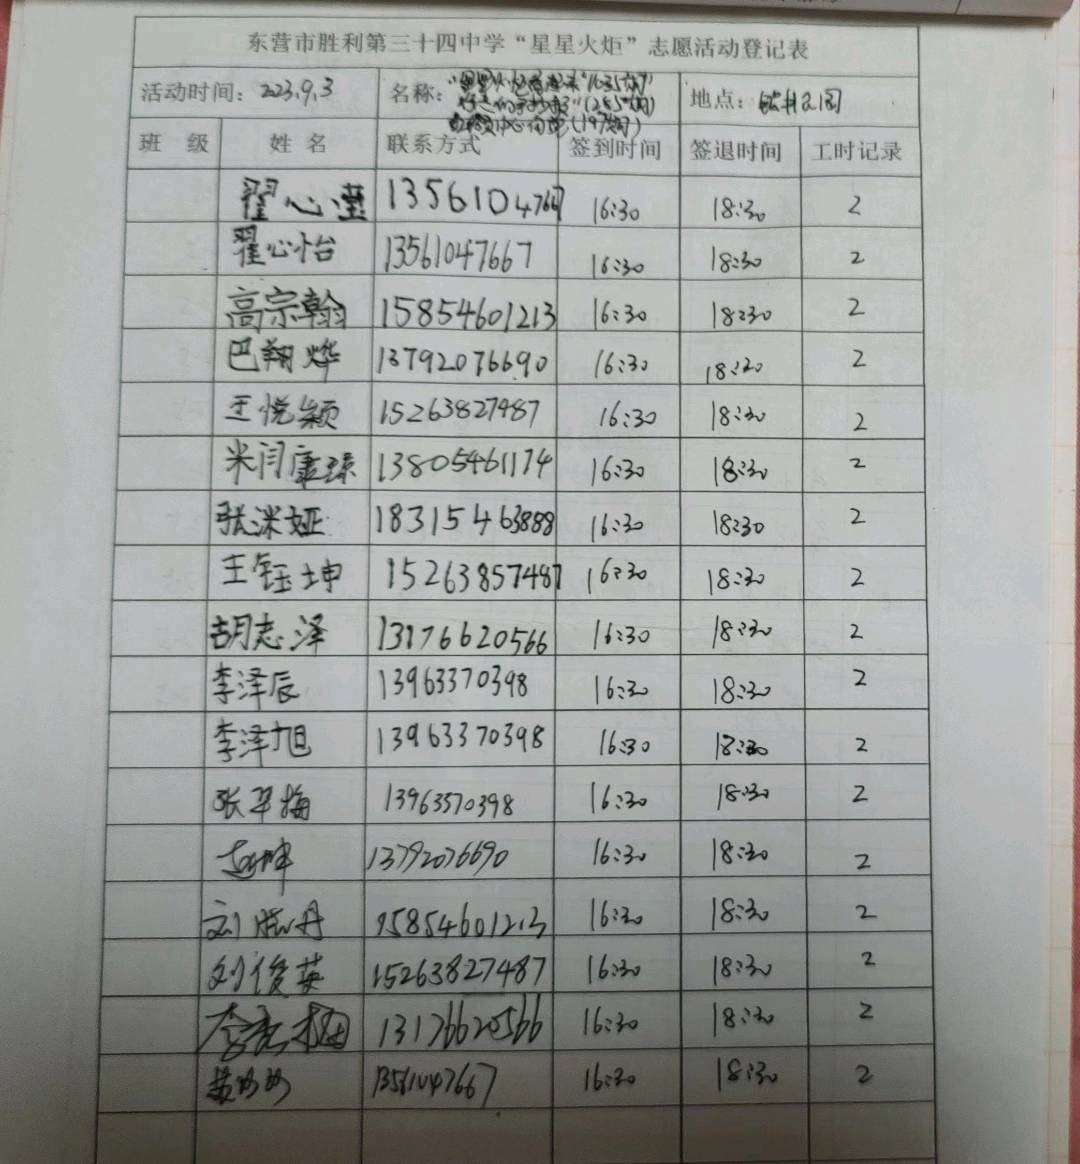 东营市胜利第三十四中学“星星火炬”志愿活动登记表
活动时间: 2023.9.3 名称: 地点:
班 级 姓 名 联系方式 签到时间 签退时间 工时记录
翟心滢 13561047667 16:30 18:30 2
翟心怡 13561047667 16:30 18:30 2
高宗翰 15854601213 16:30 18:30 2
巴翔烨 13792076690 16:30 18:30 2
王悦颖 15263827487 16:30 18:30 2
米闫康臻 13805461174 16:30 18:30 2
张洣娅 18315463888 16:30 18:30 2
王钰坤 15263857487 16:30 18:30 2
胡志泽 13176620566 16:30 18:30 2
李泽辰 13963370398 16:30 18:30 2
李泽旭 13963370398 16:30 18:30 2
张翠梅 13963370398 16:30 18:30 2
13792076690 16:30 18:30 2
刘晓丹 15854601213 16:30 18:30 2
刘俊英 15263827487 16:30 18:30 2
李 13176620566 16:30 18:30 2
13561047667 16:30 18:30 2